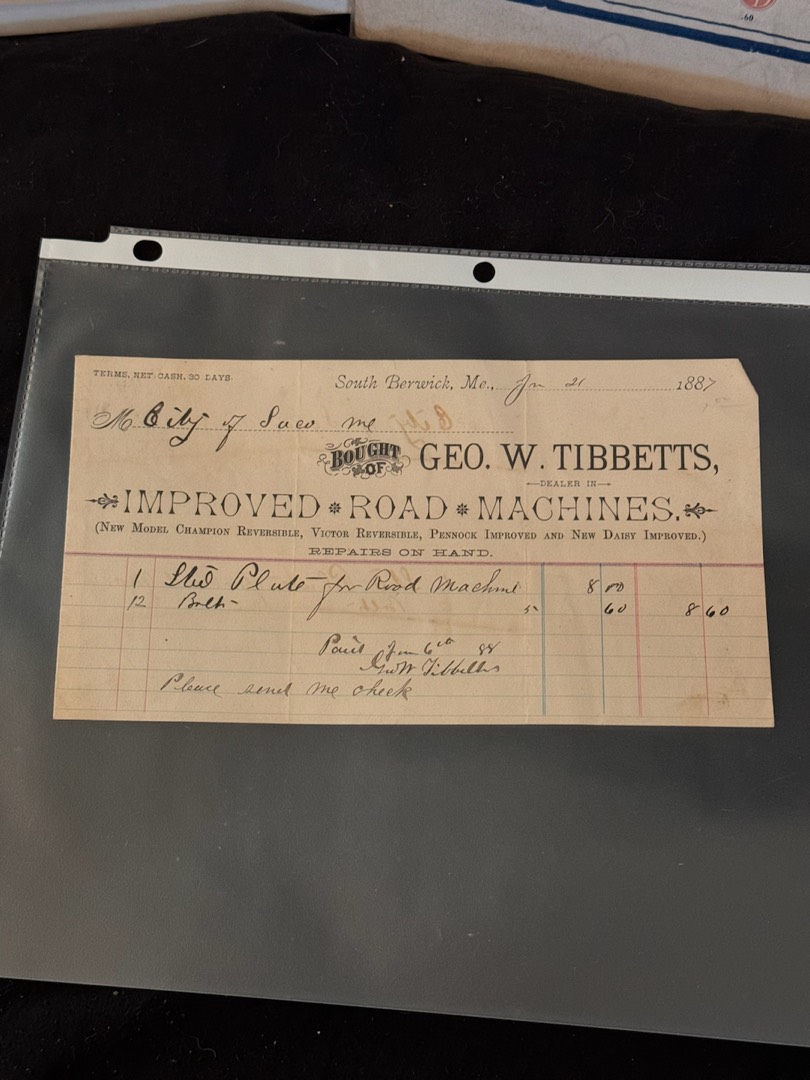 60
TERMS, NET CASH, 30 DAYS.
South Berwick, Me., Jun 21 1887
M City of Saco Me
BOUGHT OF GEO. W. TIBBETTS,
DEALER IN
IMPROVED ROAD MACHINES.
(New Model Champion Reversible, Victor Reversible, Pennock Improved and New Daisy Improved.)
REPAIRS ON HAND.
1 Steel Plate for Road Machine 8 00
12 Bolts 5 60 8 60
Paid Jan 6th 88
Geo W Tibbetts
Please send me check